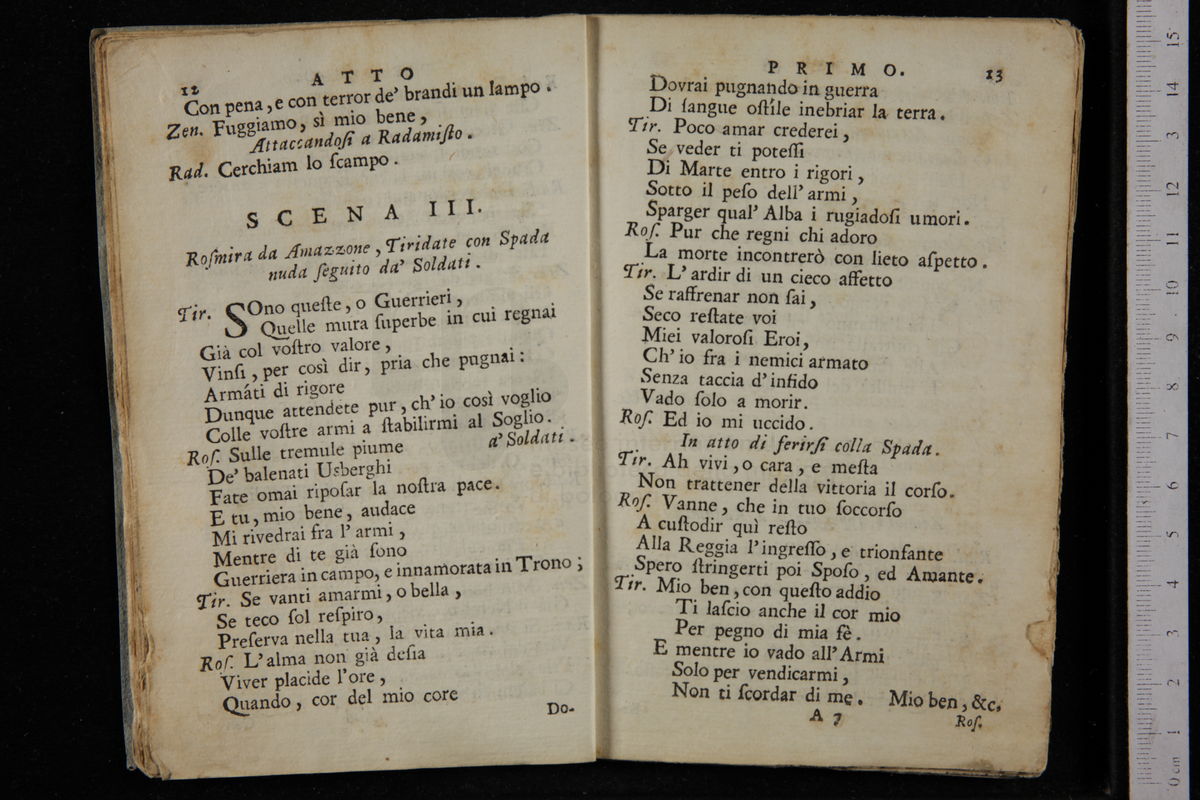 12 ATTO
Con pena, e con terror de' brandi un lampo.
Zen. Fuggiamo, sì mio bene,
Attaccandoſi a Radamiſto.
Rad. Cerchiam lo ſcampo.
SCENA III.
Roſmira da Amazzone, Tiridate con Spada
nuda ſeguito da' Soldati.
Tir. SOno queſte, o Guerrieri,
Quelle mura ſuperbe in cui regnai
Già col voſtro valore,
Vinſi, per così dir, pria che pugnai:
Armáti di rigore
Dunque attendete pur, ch'io così voglio
Colle voſtre armi a ſtabilirmi al Soglio.
a' Soldati.
Roſ. Sulle tremule piume
De' balenati Usberghi
Fate omai ripoſar la noſtra pace.
E tu, mio bene, audace
Mi rivedrai fra l'armi,
Mentre di te già ſono
Guerriera in campo, e innamorata in Trono;
Tir. Se vanti amarmi, o bella,
Se teco ſol reſpiro,
Preſerva nella tua, la vita mia.
Roſ. L'alma non già deſia
Viver placide l'ore,
Quando, cor del mio core
Do-
PRIMO. 13
Dovrai pugnando in guerra
Di ſangue oſtíle inebriar la terra.
Tir. Poco amar crederei,
Se veder ti poteſſi
Di Marte entro i rigori,
Sotto il peſo dell'armi,
Sparger qual' Alba i rugiadoſi umori.
Roſ. Pur che regni chi adoro
La morte incontrerò con lieto aſpetto.
Tir. L'ardir di un cieco affetto
Se raffrenar non ſai,
Seco reſtate voi
Miei valoroſi Eroi,
Ch'io fra i nemici armato
Senza taccia d'infido
Vado ſolo a morir.
Roſ. Ed io mi uccido.
In atto di ferirſi colla Spada.
Tir. Ah vivi, o cara, e meſta
Non trattener della vittoria il corſo.
Roſ. Vanne, che in tuo ſoccorſo
A cuſtodir quì reſto
Alla Reggia l'ingreſſo, e trionfante
Spero ſtringerti poi Spoſo, ed Amante.
Tir. Mio ben, con queſto addio
Ti laſcio anche il cor mio
Per pegno di mia fè.
E mentre io vado all'Armi
Solo per vendicarmi,
Non ti ſcordar di me. Mio ben, &c.
A 7 Roſ.
0 cm 1 2 3 4 5 6 7 8 9 10 11 12 13 14 15